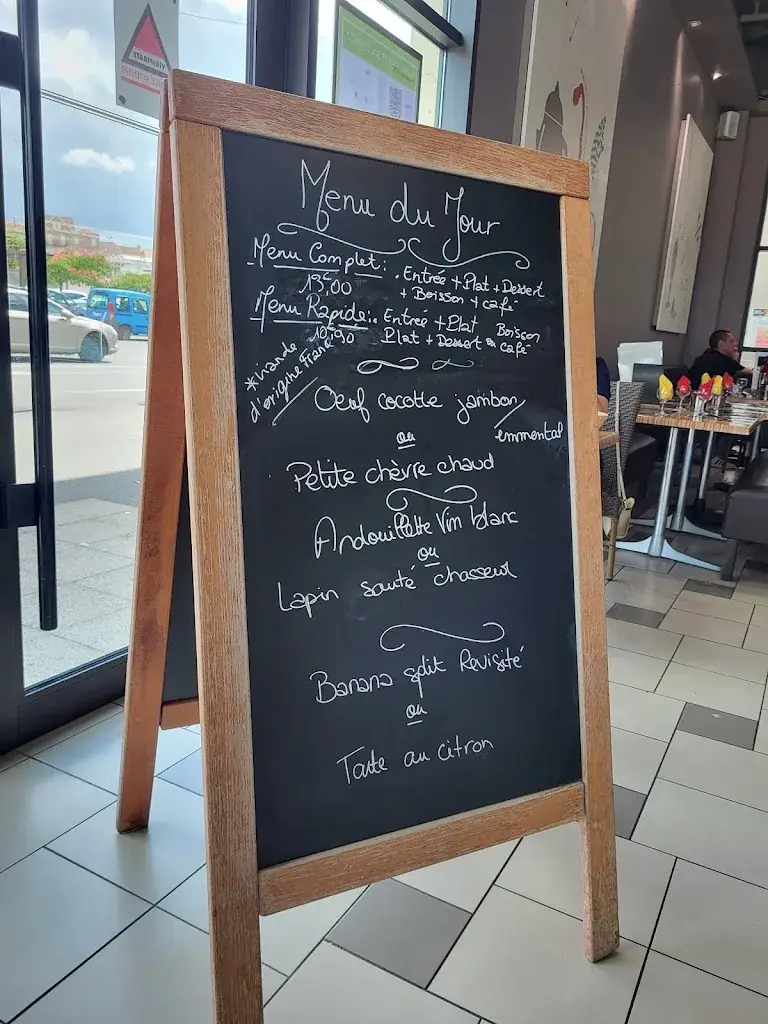 Menu du Jour
Menu Complet: . Entrée + Plat + Dessert
13,00 + Boisson + café
Menu Rapide: . Entrée + Plat Boisson
10,90 Plat + Dessert ou café
*viande
d'origine France
Oeuf cocotte jambon/
emmental
ou
Petite chèvre chaud
Andouillette Vin blanc
ou
Lapin sauté chasseur
Banana split Revisité
ou
Tarte au citron